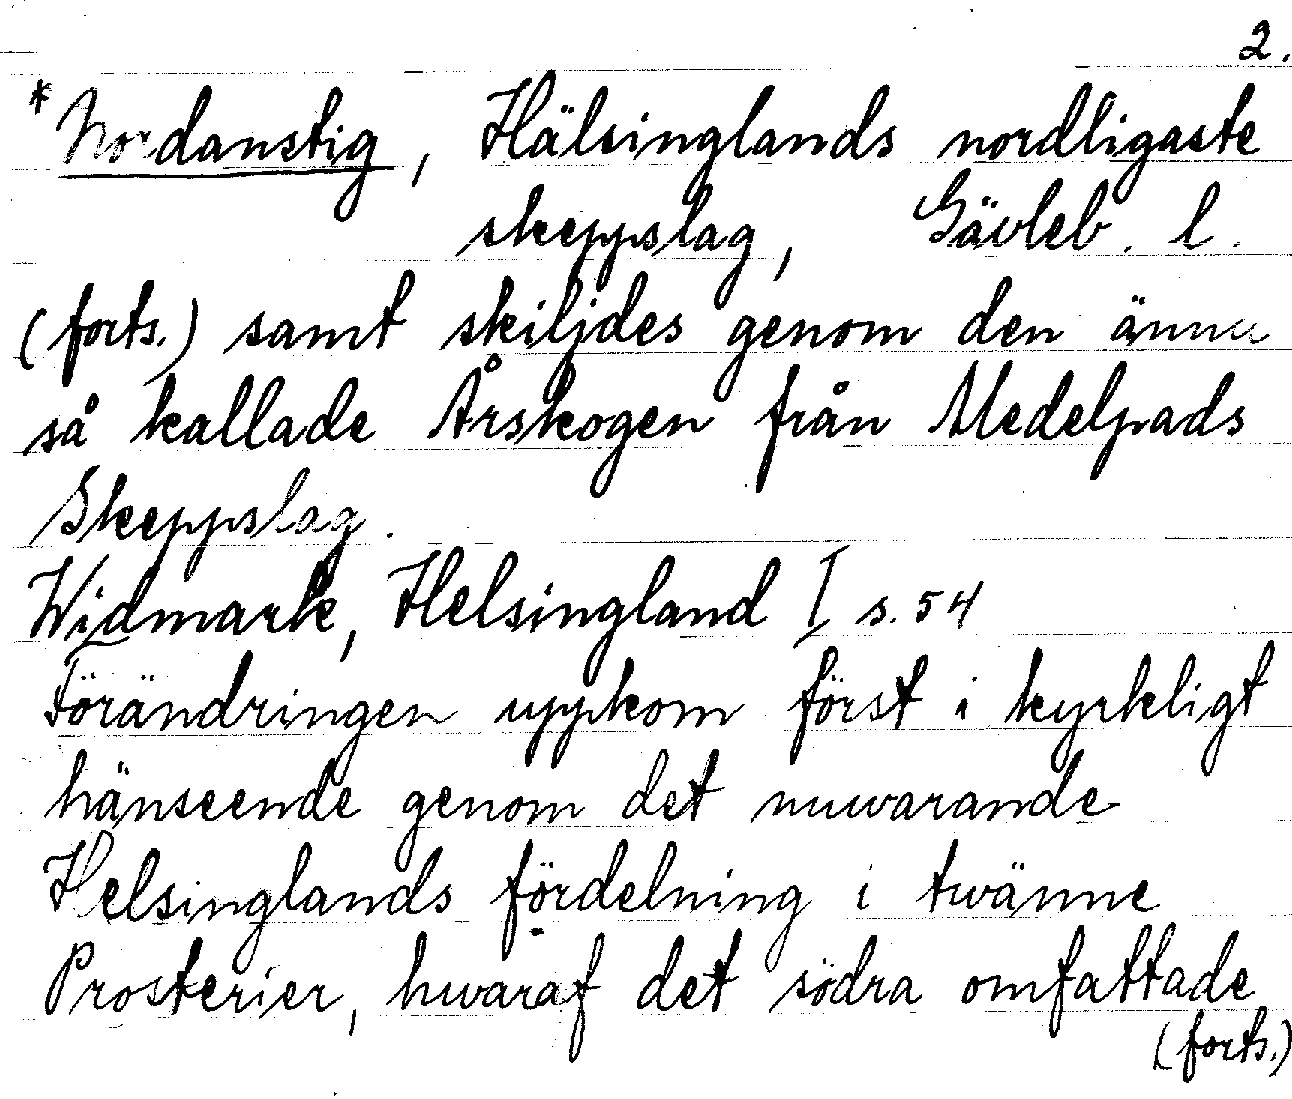 2.
*Nordanstig, Hälsinglands nordligaste
skeppslag, Gävleb. l.
(forts.) samt skiljdes genom den ännu
så kallade Årskogen från Medelpads
Skeppslag.
Widmark, Helsingland I s. 54
Förändringen uppkom först i kyrkligt
hänseende genom det nuwarande
Helsinglands fördelning i twänne
Prosterier, hwaraf det södra omfattade
(forts.)